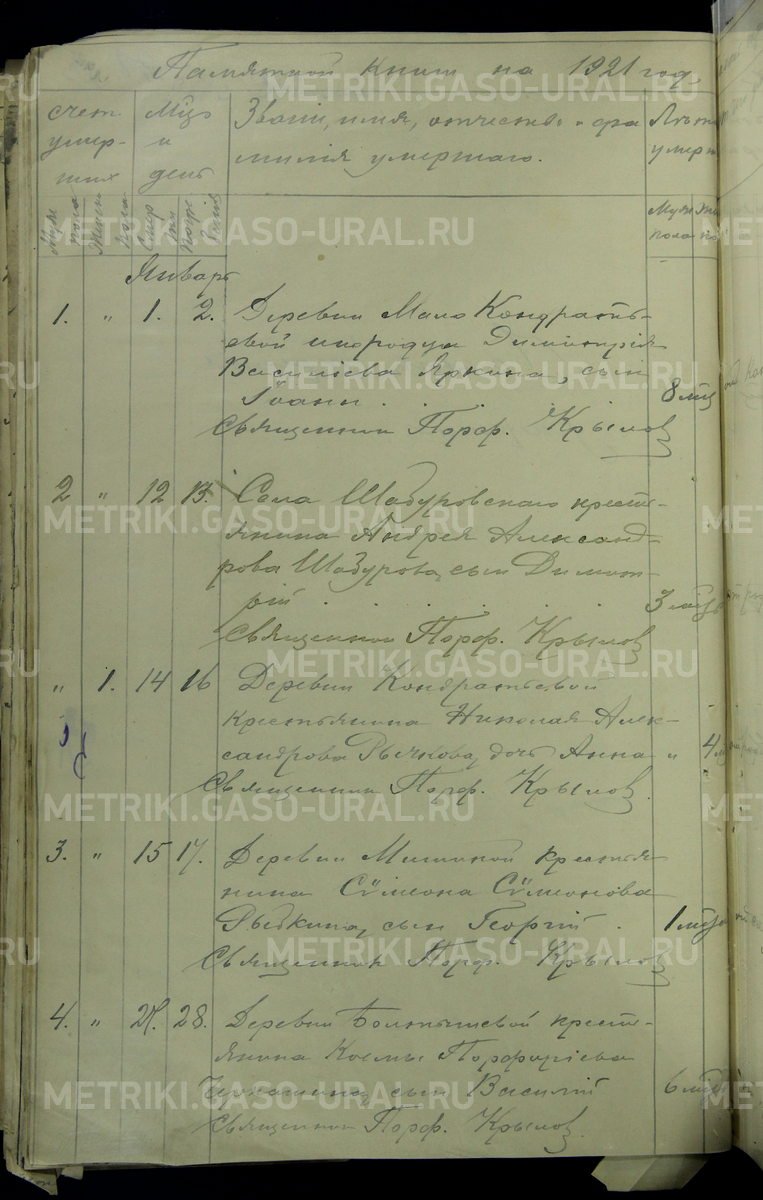 Памятной книги на 1921 год.
счет умер- ших
Мѣс. и день
Званіе, имя, отчество и фа-
милія умершаго.
Лѣта умерш
Муж. пола
Женск. пола
Смер ти
Погре бенія
Муж. пола
Январь
1. " 1. 2. Деревни Мало Кондрать-
евой инородца Димитрія
Василіева Яркина, сын
Іоанн. 8 мѣс
Священник Порф. Крылов
2 " 12 13. Села Шабуровскаго кресть-
янина Андрея Александ-
рова Шабурова, сын Димит-
рій 3 мѣс
Священник Порф. Крылов
" 1. 14 16 Деревни Кондратьевой
крестьянина Николая Алек-
сандрова Рычкова, дочь Анна " 4
Священник Порф. Крылов.
3. " 15 17. Деревни крестья-
нина Сѵмеона Сѵмеонова
сын Георгій. 1 мѣс
Священник Порф. Крылов
4. " 28. Деревни кресть-
янина Космы Порфиріева
сын Василій 6 мѣс
Священник Порф. Крылов.
METRIKI.GASO-URAL.RU